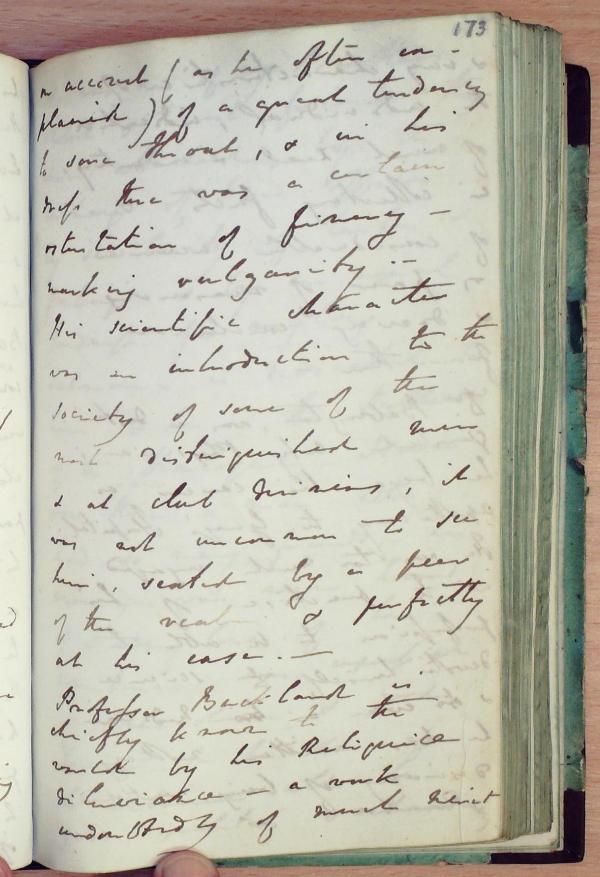 173
on account (as he often ex-
plained) of a great tendency
to sore throat, & in his
dress there was a certain
ostentation of finery -
marking vulgarity. -
His scientific character
was an introduction to the
society of some of the
most distinguished men
& at club dinners, it
was not uncommon to see
him, seated by a peer
of the realm & perfectly
at his ease. -
Professor Buckland is
chiefly known to the
world by his Reliquiae
diluvianae - a work
undoubtedly of much merit